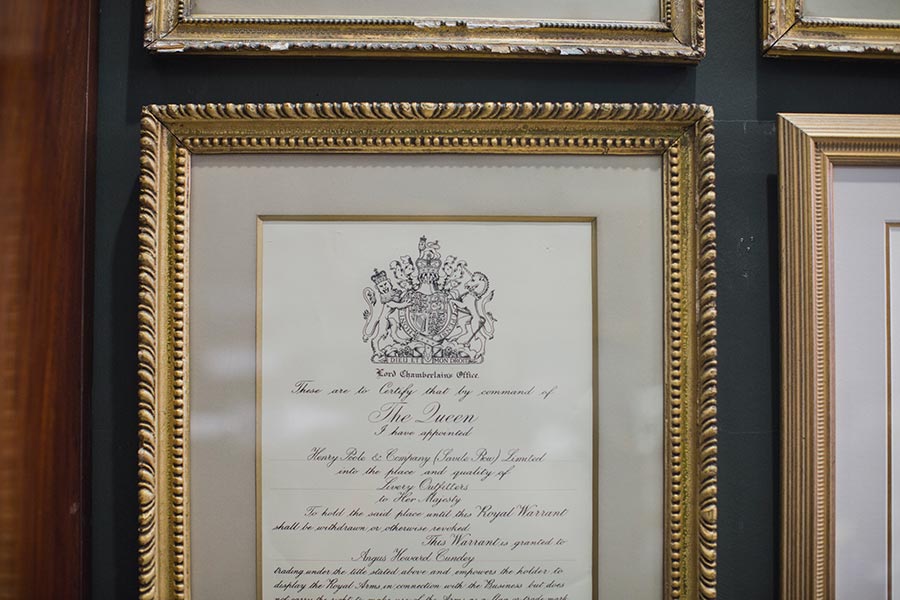 DIEU ET MON DROIT
Lord Chamberlain's Office.
These are to Certify that by command of
The Queen
I have appointed
Henry Poole & Company (Savile Row) Limited
into the place and quality of
Livery Outfitters
to Her Majesty
To hold the said place until this Royal Warrant
shall be withdrawn or otherwise revoked.
This Warrant is granted to
Angus Howard Cundey
trading under the title stated above and empowers the holder to
display the Royal Arms in connection with the Business but does
not carry the right to make use of the Arms as a flag or trade mark